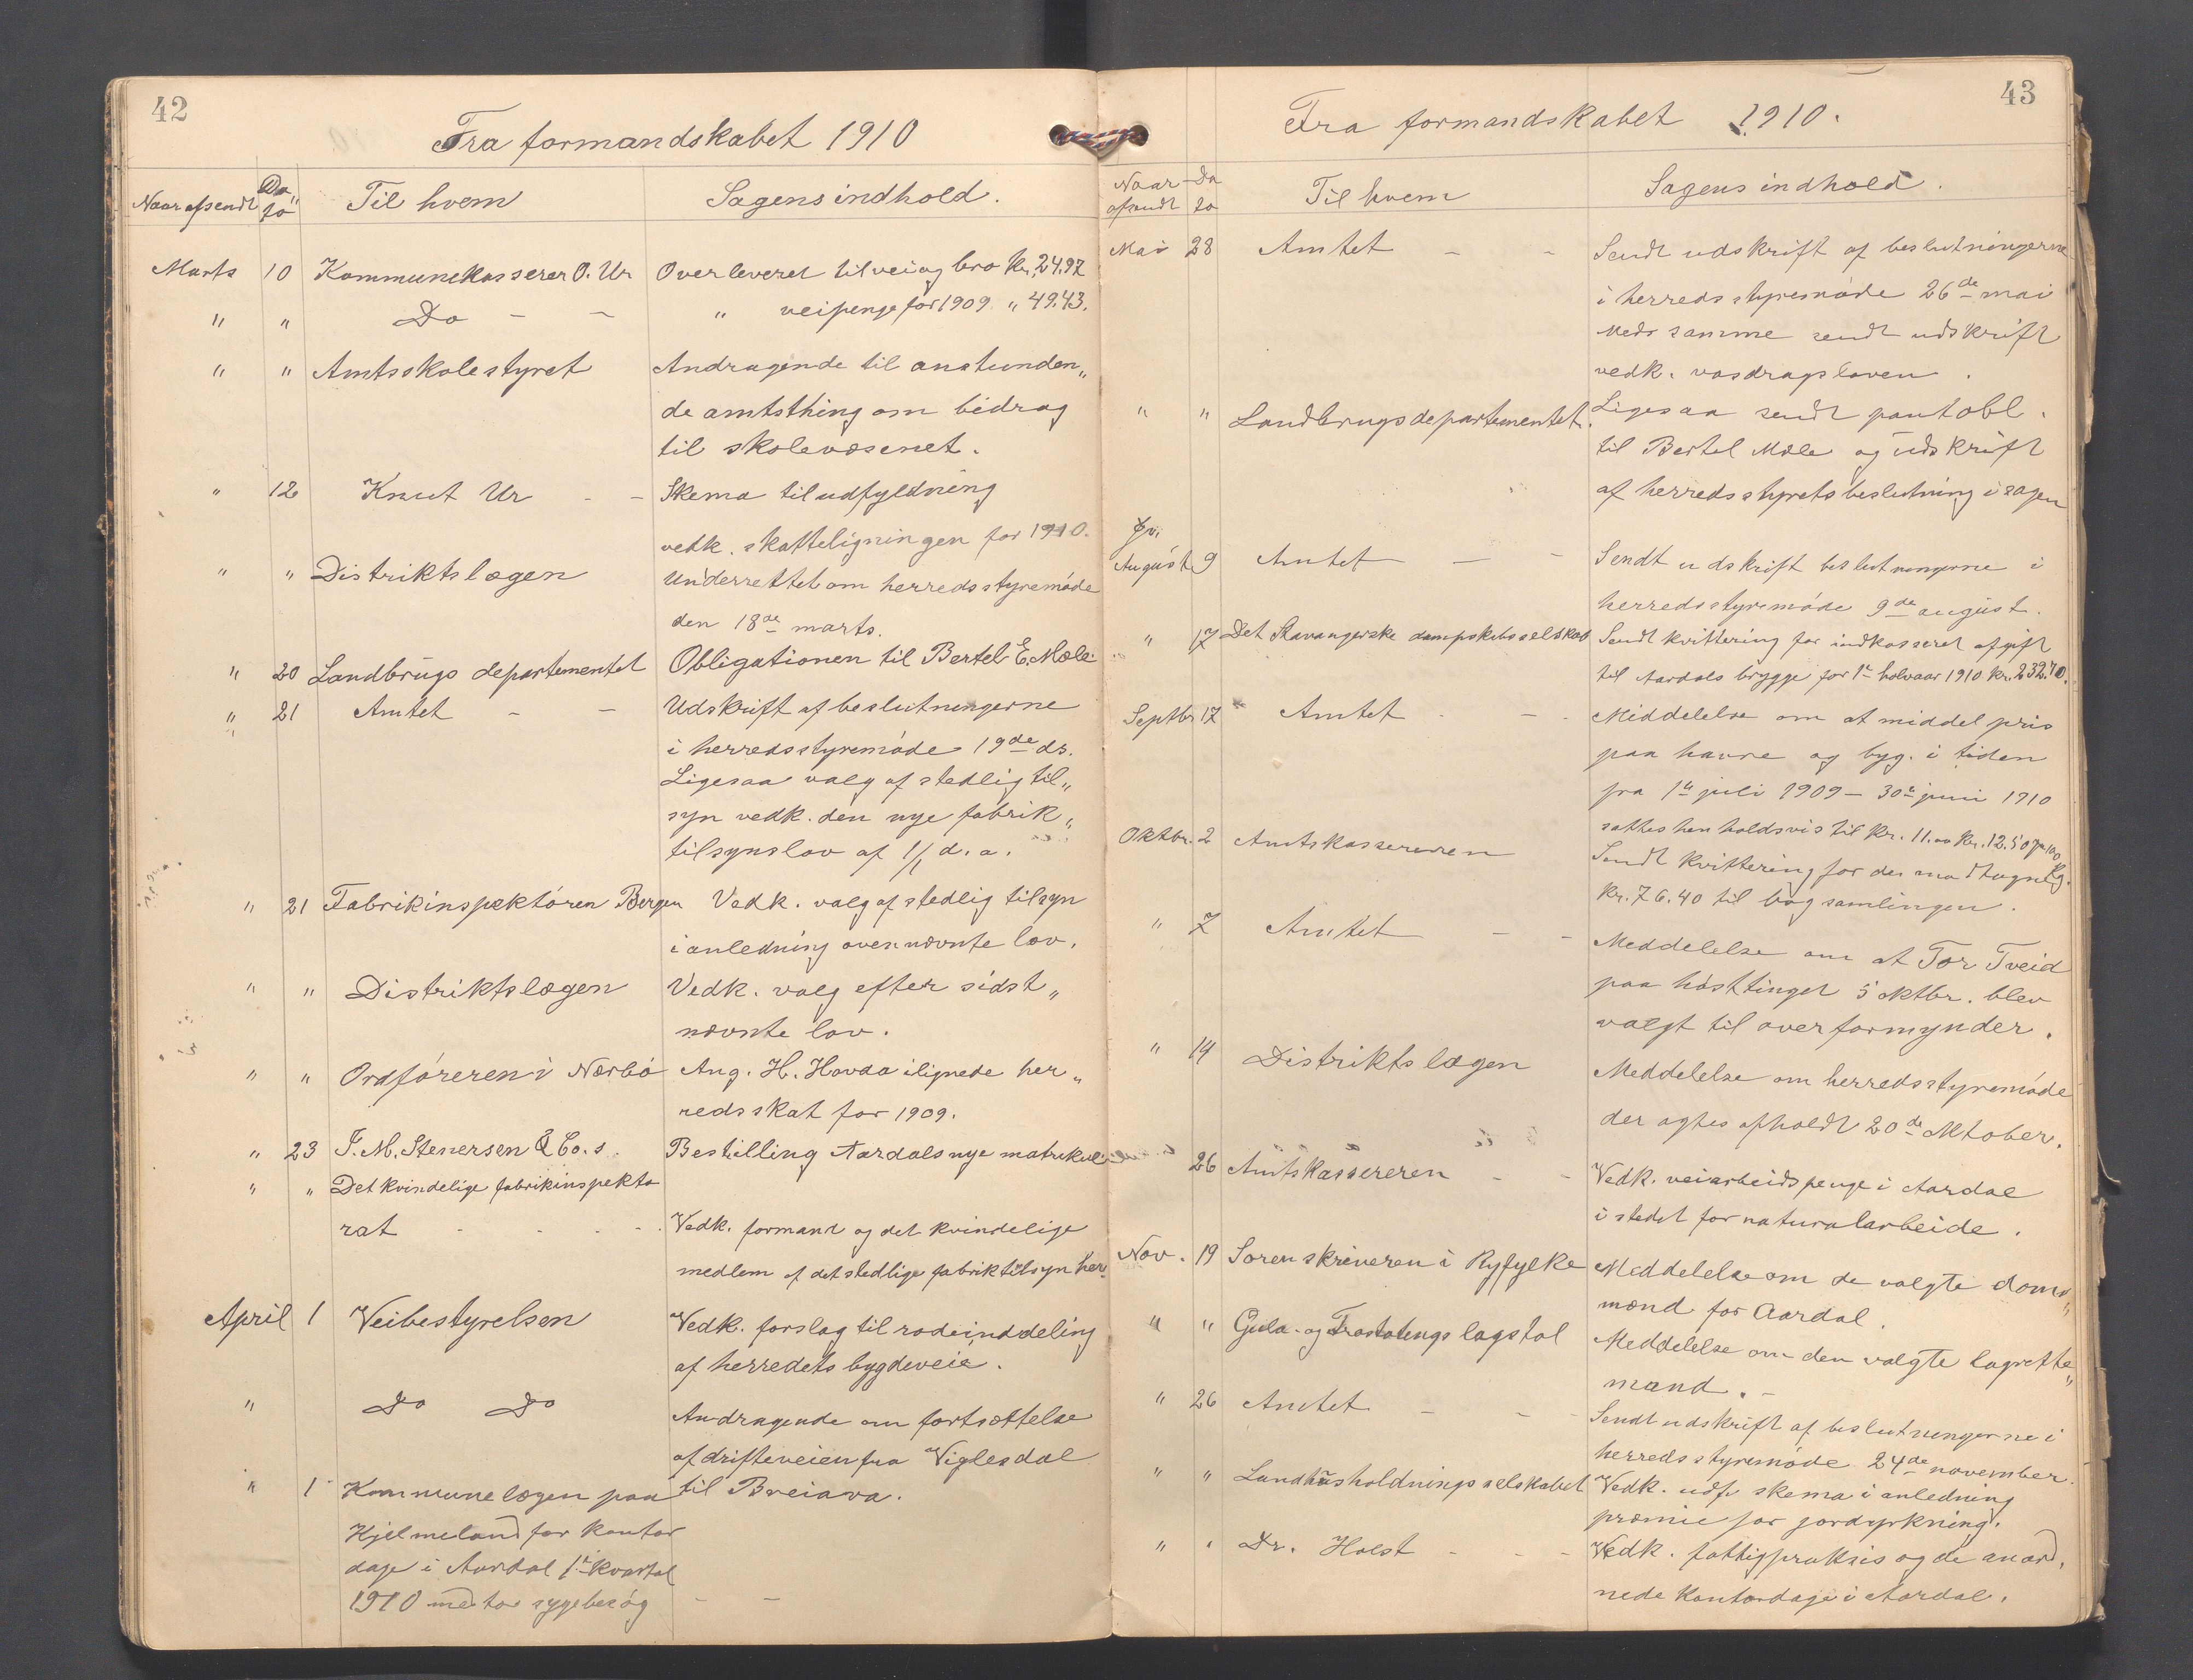 42
Fra formandskabet 1910
Naar afsendt Da„to Til hvem Sagens indhold.
Marts 10 Kommunekasserer O. Ur Overleveret til vei og bro kr. 24.97
" " Do - - " veipenge for 1909. " 49.43.
" " Amtsskolestyret Andragende til anstunden„
de amtsthing om bidrag
til skolevæsenet.
" 12 Knut Ur - - Skema til udfyldning
vedk. skatteligningen for 1910.
" " Distriktslægen Underrettet om herredsstyremøde
den 18de marts.
" 20 Landbrugsdepartementet Obligationen til Bertel E. Mæle
" 21 Amtet - - Udskrift af beslutningerne
i herredsstyremøde 19de ds.
Ligesaa valg af stedlig til„
syn vedk. den nye fabrik„
tilsynslov af 1/1 d. a.
" 21 Fabrikinspektøren Bergen Vedk. valg af stedlig tilsyn
i anledning ovennævnte lov.
" " Distriktslægen Vedk. valg efter sidst„
nævnte lov.
" " Ordføreren i Nærbø Ang. H. Hovda ilignede her„
redsskat for 1909.
" 23 J. M. Stenersen & Co. s. Bestilling Aardals nye matrikul
" " Det kvindelige fabrikinspekto
rat - - - - Vedk. formand og det kvindelige
medlem af det stedlige fabriktilsyn her
April 1 Veibestyrelsen Vedk. forslag til rodeinddeling
af herredets bygdeveie.
" Do Do Andragende om fortsættelse
af drifteveien fra Viglesdal
" 1 Kommunelægen paa til Breiava.
Hjelmeland for kontor
dage i Aardal 1ste kvartal
1910 med to sygebesøg - -
43
Fra formandskabet 1910.
Naar afsendt Da to Til hvem Sagens indhold.
Mai 28 Amtet - - Sendt udskrift af beslutningerne
i herredsstyremøde 26de mai
Med samme sendt udskrift
vedk. vasdragsloven.
" " Landbrugsdepartementet. Ligesaa sendt pantobl.
til Bertel Mæle og udskrift
af herredsstyrets beslutning i sagen
August 9 Amtet - - Sendt udskrift beslutningerne i
herredsstyremøde 9de august.
" 17 Det Stavangerske dampskibsselskab Sendt kvittering for indkasseret afgift
til Aardals brygge for 1ste halvaar 1910 kr. 232.70.
Septbr 17 Amtet - - - Middelelse om at middelpris
paa havre og byg. i tiden
fra 1ste juli 1909 - 30te juni 1910
sattes henholdsvis til kr. 11.00 kr. 12.50 pr 100 kg.
Oktbr. 2 Amtskassereren Sendt kvittering for den modtagne
kr. 76.40 til bogsamlingen.
" 7 Amtet - - Meddelelse om at Tor Tveid
paa høsttinget 5 oktbr. blev
valgt til overformynder.
" 14 Distriktslægen Meddelelse om herredsstyremøde
der agtes afholdt 20de oktober.
26 Amtskassereren - - Vedk. veiarbeidspenge i Aardal
i stedet for naturalarbeide.
Nov. 19 Sorenskriveren i Ryfylke Meddelelse om de valgte doms„
mænd for Aardal.
" " Gula- og Frostatings lagstol Meddelelse om den valgte lagrette„
mand. -
" 26 Amtet - - - Sendt udskrift af beslutningerne i
herredsstyremøde 24de november.
" " Landhusholdningsselskabet Vedk. udf. skema i anledning
præmie for jordyrkning.
" " Dr. Holst - - - Vedk. fattigpraksis og de anord„
nede kontordage i Aardal.